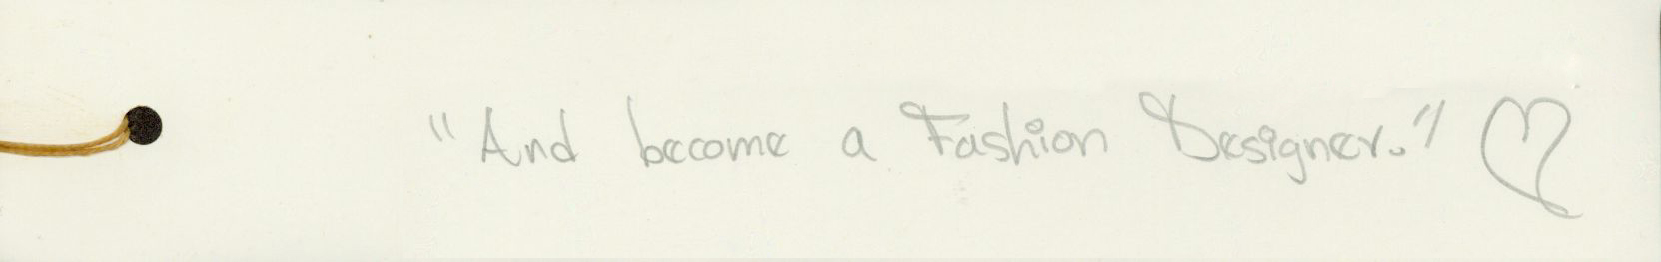 "And become a Fashion Designer." ♡